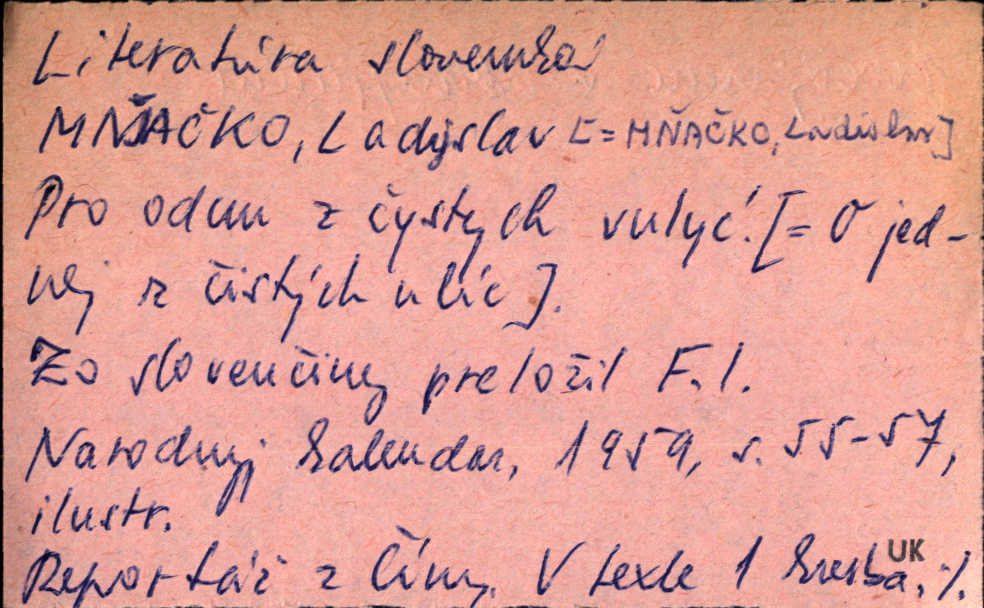 Literatúra slovenská
MŇAČKO, Ladyslav [= MŇAČKO, Ladislav]
Pro odnu z čystych vulyć. [= O jed-
nej z čistých ulíc].
Zo slovenčiny preložil F.I.
Narodnyj kalendar, 1959, s. 55-57,
ilustr.
Reportáž z Číny. V texte 1 kresba. ·/.
UK